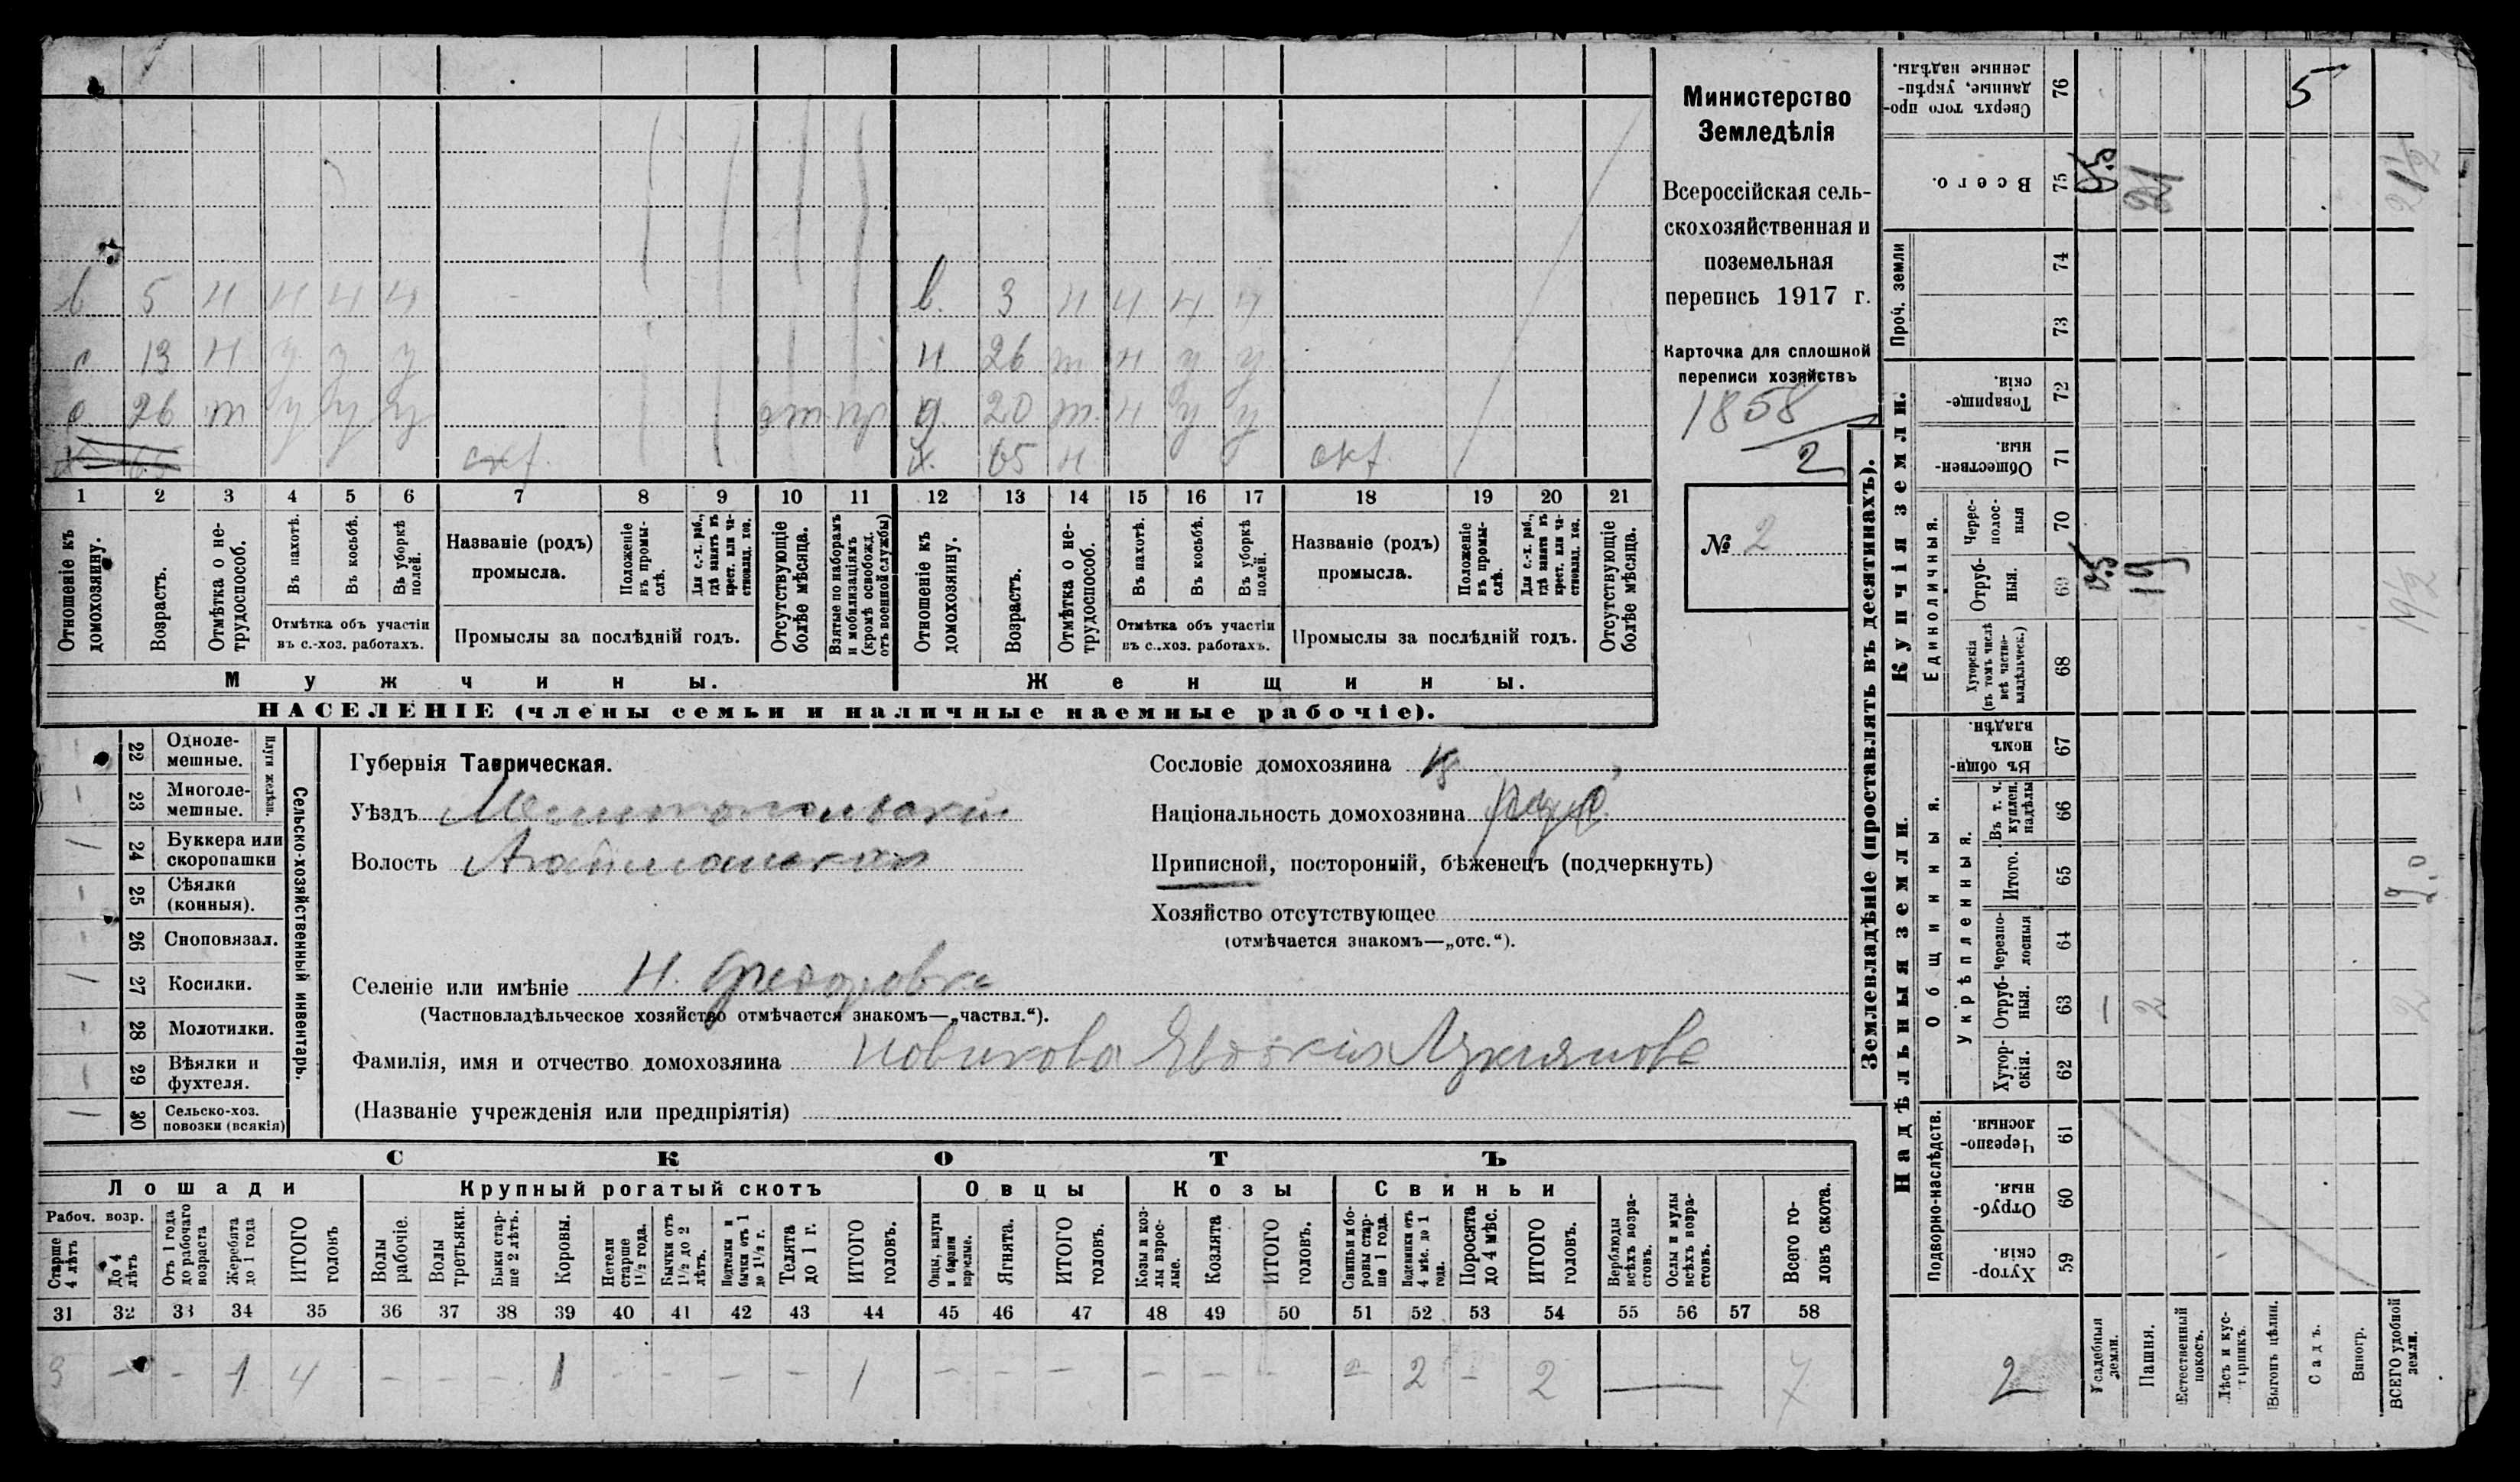 в 5 н н н н — в. 3 н н н н
с 13 н у у у н 26 т н у у
с. 26 т у у у от пр д. 20 т. н у у
х 65 скх. х. 65 н скх.
1 2 3 4 5 6 7 8 9 10 11 12 13 14 15 16 17 18 19 20 21
Отношеніе къ домохозяину.
Возрастъ.
Отмѣтка о не-трудоспособ.
Въ пахотѣ.
Въ косьбѣ.
Въ уборкѣ полей.
Отмѣтка объ участіи
въ с.-хоз. работахъ.
Названіе (родъ)
промысла.
Положеніе въ промы-слѣ.
Для с.-х. раб., гдѣ занятъ въ крест. или ча-стновлад. хоз.
Промыслы за послѣдній годъ.
Отсутствующіе болѣе мѣсяца.
Взятые по наборамъ и мобилизаціямъ (кромѣ освобожд. отъ военной службы)
Отношеніе къ домохозяину.
Возрастъ.
Отмѣтка о не-трудоспособ.
Въ пахотѣ.
Въ косьбѣ.
Въ уборкѣ полей.
Отмѣтка объ участіи
въ с.-хоз. работахъ.
Названіе (родъ)
промысла.
Положеніе въ промы-слѣ.
Для с.-х. раб., гдѣ занята въ крест. или ча-стновлад. хоз.
Промыслы за послѣдній годъ.
Отсутствующіе болѣе мѣсяца.
Мужчины. Женщины.
НАСЕЛЕНІЕ (члены семьи и наличные наемные рабочіе).
Министерство
Земледѣлія
Всероссійская сель-
скохозяйственная и
поземельная
перепись 1917 г.
Карточка для сплошной
переписи хозяйствъ
1858
2
№ 2
Сельско-хозяйственный инвентарь.
Плуги желѣзн.
22 Одноле-мешные.
23 Многоле-мешные.
24 Буккера или скоропашки
25 Сѣялки (конныя).
26 Сноповязал.
27 Косилки.
28 Молотилки.
29 Вѣялки и фухтеля.
30 Сельско-хоз. повозки (всякія)
Губернія Таврическая.
Уѣздъ Мелитопольскій
Волость
Сословіе домохозяина
Національность домохозяина
Приписной, посторонній, бѣженецъ (подчеркнуть)
Хозяйство отсутствующее
(отмѣчается знакомъ—„отс.“).
Селеніе или имѣніе Н. Федоровка
(Частновладѣльческое хозяйство отмѣчается знакомъ—„частвл.“).
Фамилія, имя и отчество домохозяина Новикова Явдокія Лукьянова
(Названіе учрежденія или предпріятія)
СКОТЪ
Лошади
Рабоч. возр.
Старше 4 лѣтъ
До 4 лѣтъ
Отъ 1 года до рабочаго возраста
Жеребята до 1 года
ИТОГО головъ
Крупный рогатый скотъ
Волы рабочіе.
Волы третьяки.
Быки стар-ше 2 лѣтъ.
Коровы.
Нетели старше 1½ года.
Бычки отъ 1½ до 2 лѣтъ.
Подтелки и бычки отъ 1 до 1½ г.
Телята до 1 г.
ИТОГО головъ.
Овцы
Овцы, валухи и бараны взрослые.
Ягнята.
ИТОГО головъ.
Козы
Козы и коз-лы взрос-лые.
Козлята
ИТОГО головъ.
Свиньи
Свиньи и бо-ровы стар-ше 1 года.
Подсвинки отъ 4 мѣс. до 1 года.
Поросята до 4 мѣс.
ИТОГО головъ.
Верблюды всѣхъ возра-стовъ.
Ослы и мулы всѣхъ возра-стовъ.
Всего го-ловъ скота.
31 32 33 34 35 36 37 38 39 40 41 42 43 44 45 46 47 48 49 50 51 52 53 54 55 56 57 58
3 — - 1 4 - - - 1 - - - - 1 - - - - - - - 2 - 2 — 7
Землевладѣніе (проставлять въ десятинахъ).
Купчія земли.
Сверхъ того про-данные, укрѣп-ленные надѣлы. 76 5
Всего. 75 0.5 21 21½
Проч. земли 74
73
Товарище-скія. 72
Обществен-ныя 71
Единоличныя.
Черес-полос-ныя 70
Отруб-ныя. 69 0.5 19 19½
Хуторскія (въ томъ числѣ всѣ частно-владѣльческ.) 68
Надѣльныя земли.
Общинныя.
Въ общи-номъ владѣн. 67
Укрѣпленныя.
Въ т. ч. куплен. надѣлы 66
Итого. 65 2,0
Черезпо-лосныя 64
Отруб-ныя. 63 — 2 2
Хутор-скія. 62
Подворно-наслѣдств.
Черезпо-лосныя. 61
Отруб-ныя. 60
Хутор-скія. 59
2
Усадебныя земли.
Пашня.
Естественный покосъ.
Лѣсъ и кус-тарникъ.
Выгонъ цѣлин.
Садъ.
Виногр.
ВСЕГО удобной земли.